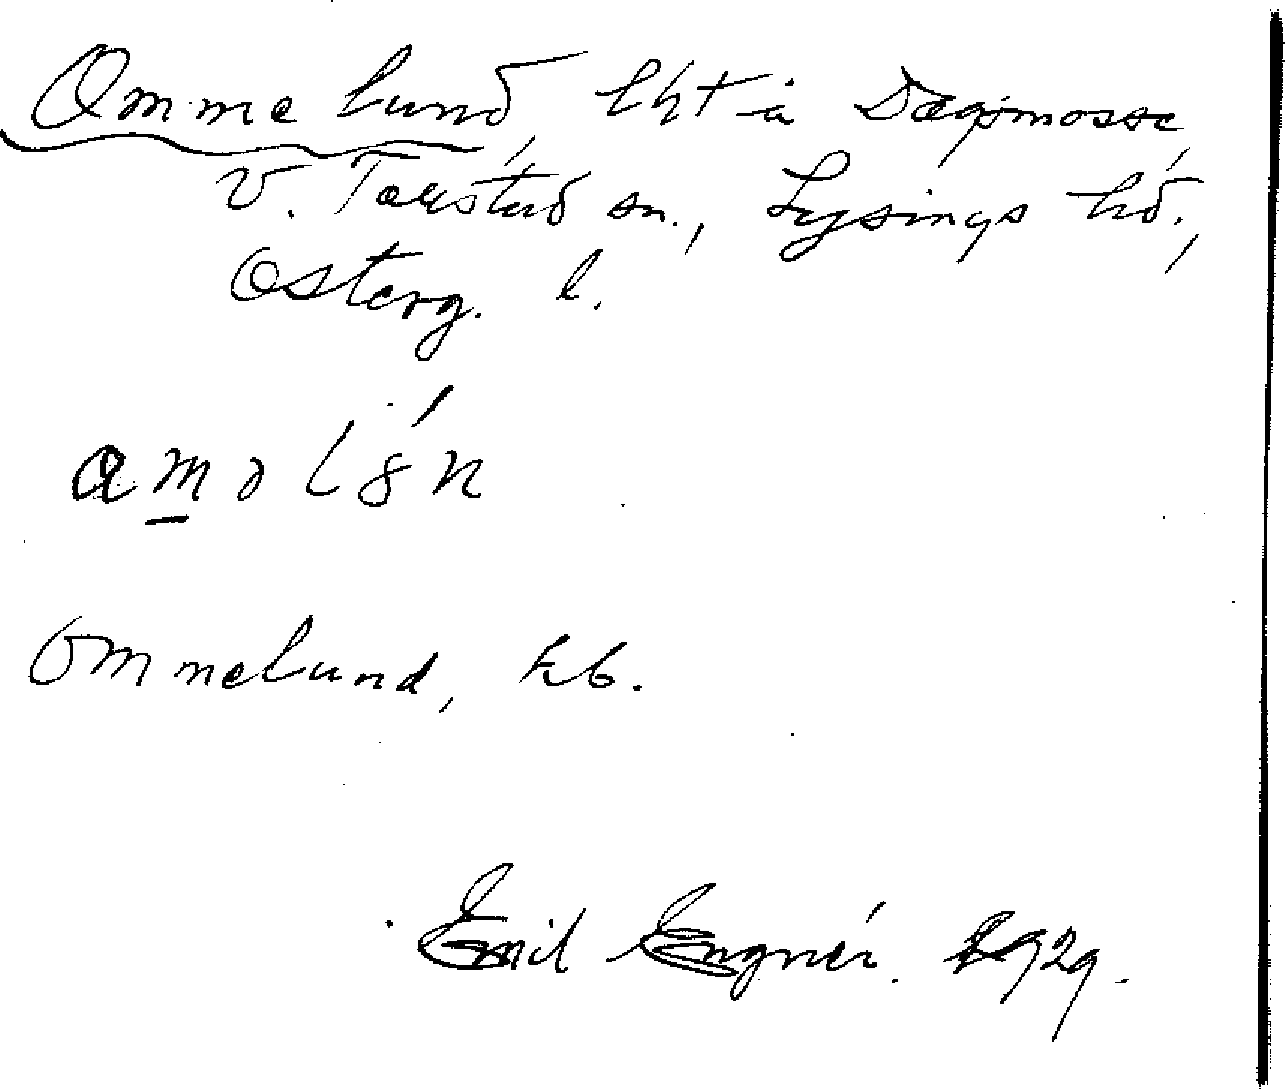 Ommelund, lht å Dagsmosse,
V. Tollstad sn., Lysings hd.,
Österg. l.
aməlśn
Ommelund, kb.
Emil Engnér. 1929.